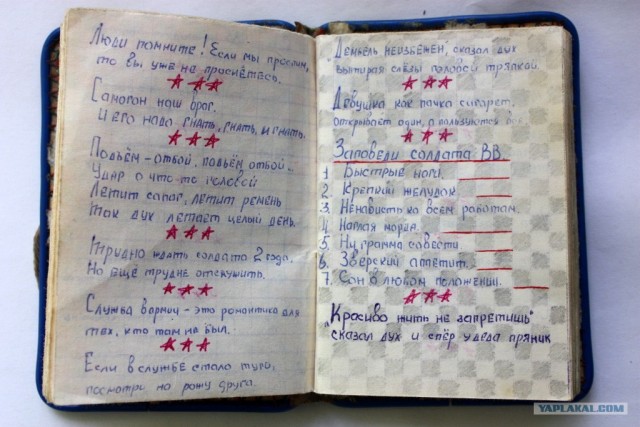 Люди помните! Если мы проспим,
то вы уже не проснётесь.
Самогон наш враг.
И его надо гнать, гнать, и гнать.
Подъём - отбой, подъём отбой.
Удар о что то головой
Летит сапог, летит ремень
Так дух летает целый день.
Трудно ждать солдата 2 года.
Но ещё трудне отслужить.
Служба в армии - это романтика для
тех, кто там не был.
Если в службе стало туго,
посмотри на рожу друга.
„Дембель неизбежен, сказал дух
вытирая слёзы половой тряпкой
Девушка как пачка сигарет.
Открывает один, а пользуются все
Заповеди солдата ВВ.
1. Быстрые ноги.
2. Крепкий желудок.
3. Ненависть ко всем работам.
4. Наглая морда.
5. Ни грамма совести
6. Зверский аппетит.
7. Сон в любом положении.
„Красиво жить не запретишь"
сказал дух и спёр у деда пряник
YAPLAKAL.COM